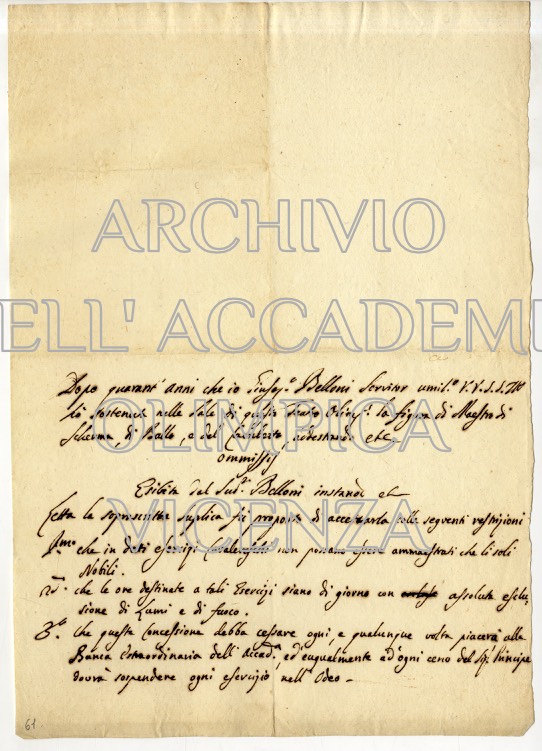 ARCHIVIO
ELL' ACCADEM
OLIMPICA
VICENZA
Dopo quarant' anni che io Giusep.e Belloni Servitor umil.o V.V. S.S. Ill
fò sostenni nelle Sale di questo Teatro Olimp.o la figura di Maestro di
Scherma, di Ballo, e del
ommissis
Esibita dal Sud.o Belloni instando etc
Letta la soprascritta suplica fù proposto di accettarla colle seguenti restrizioni
P.mo che in detti esercizj Cavallereschi non possano essere ammaestrati che li soli
Nobili.
2.do che le ore destinate a tali Esercizj siano di giorno con assoluta esclu-
sione di Lumi e di fuoco.
3.o che questa Concessione debba cessare ogni, e qualunque volta piacerà alla
Banca Estraordinaria dell' Accad.a, ed' eugualmente ad' ogni ceno del Sig.r Principe
dovrà sospendere ogni esercizio nell' Odeo-
61.